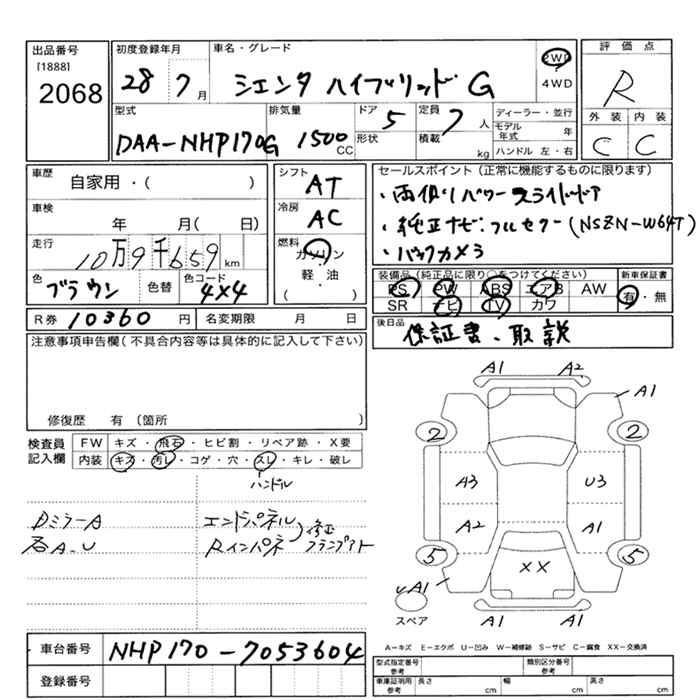 出品番号
[1888]
2068
初度登録年月
28 7月
車名・グレード
シエンタ ハイブリッド G
2WD
4WD
評価点
R
外装 内装
C C
型式
DAA-NHP170G
排気量
1500 CC
ドア 5
形状
定員 7 人
積載 kg
ディーラー・並行
モデル年式 年
ハンドル 左・右
車歴
自家用・( )
車検
年 月( 日)
走行
10万9千659 km
色
ブラウン
色替
色コード
4X4
シフト
AT
冷房
AC
燃料
ガソリン
軽・油
( )
セールスポイント(正常に機能するものに限ります)
・両側パワースライドドア
・純正ナビ・フルセグ(NSZN-W64T)
・バックカメラ
装備品(純正品に限り○をつけてください)
PS PW ABS エアB AW
SR ナビ TV カワ
新車保証書
有・無
後日品
保証書、取説
R券 10360 円
名変期限 月 日
注意事項申告欄(不具合内容等は具体的に記入して下さい)
修復歴 有 (箇所 )
検査員記入欄
FW キズ・飛石・ヒビ割・リペア跡・X要
内装 キズ・汚レ・コゲ・穴・スレ・キレ・破レ
ハンドル
DミラーA
各A.U
エンドパネル
Rインパネ
修正
A1 A2
A1
2 2
A3 U3
A2 A1
5 5
XX
A1
A1 A1
スペア
A-キズ E-エクボ U-凹み W-補修跡 S-サビ C-腐食 XX-交換済
車台番号
NHP170-7053604
登録番号
型式指定番号
参考
類別区分番号
参考
車庫証明用
参考
長さ cm
幅 cm
高さ cm